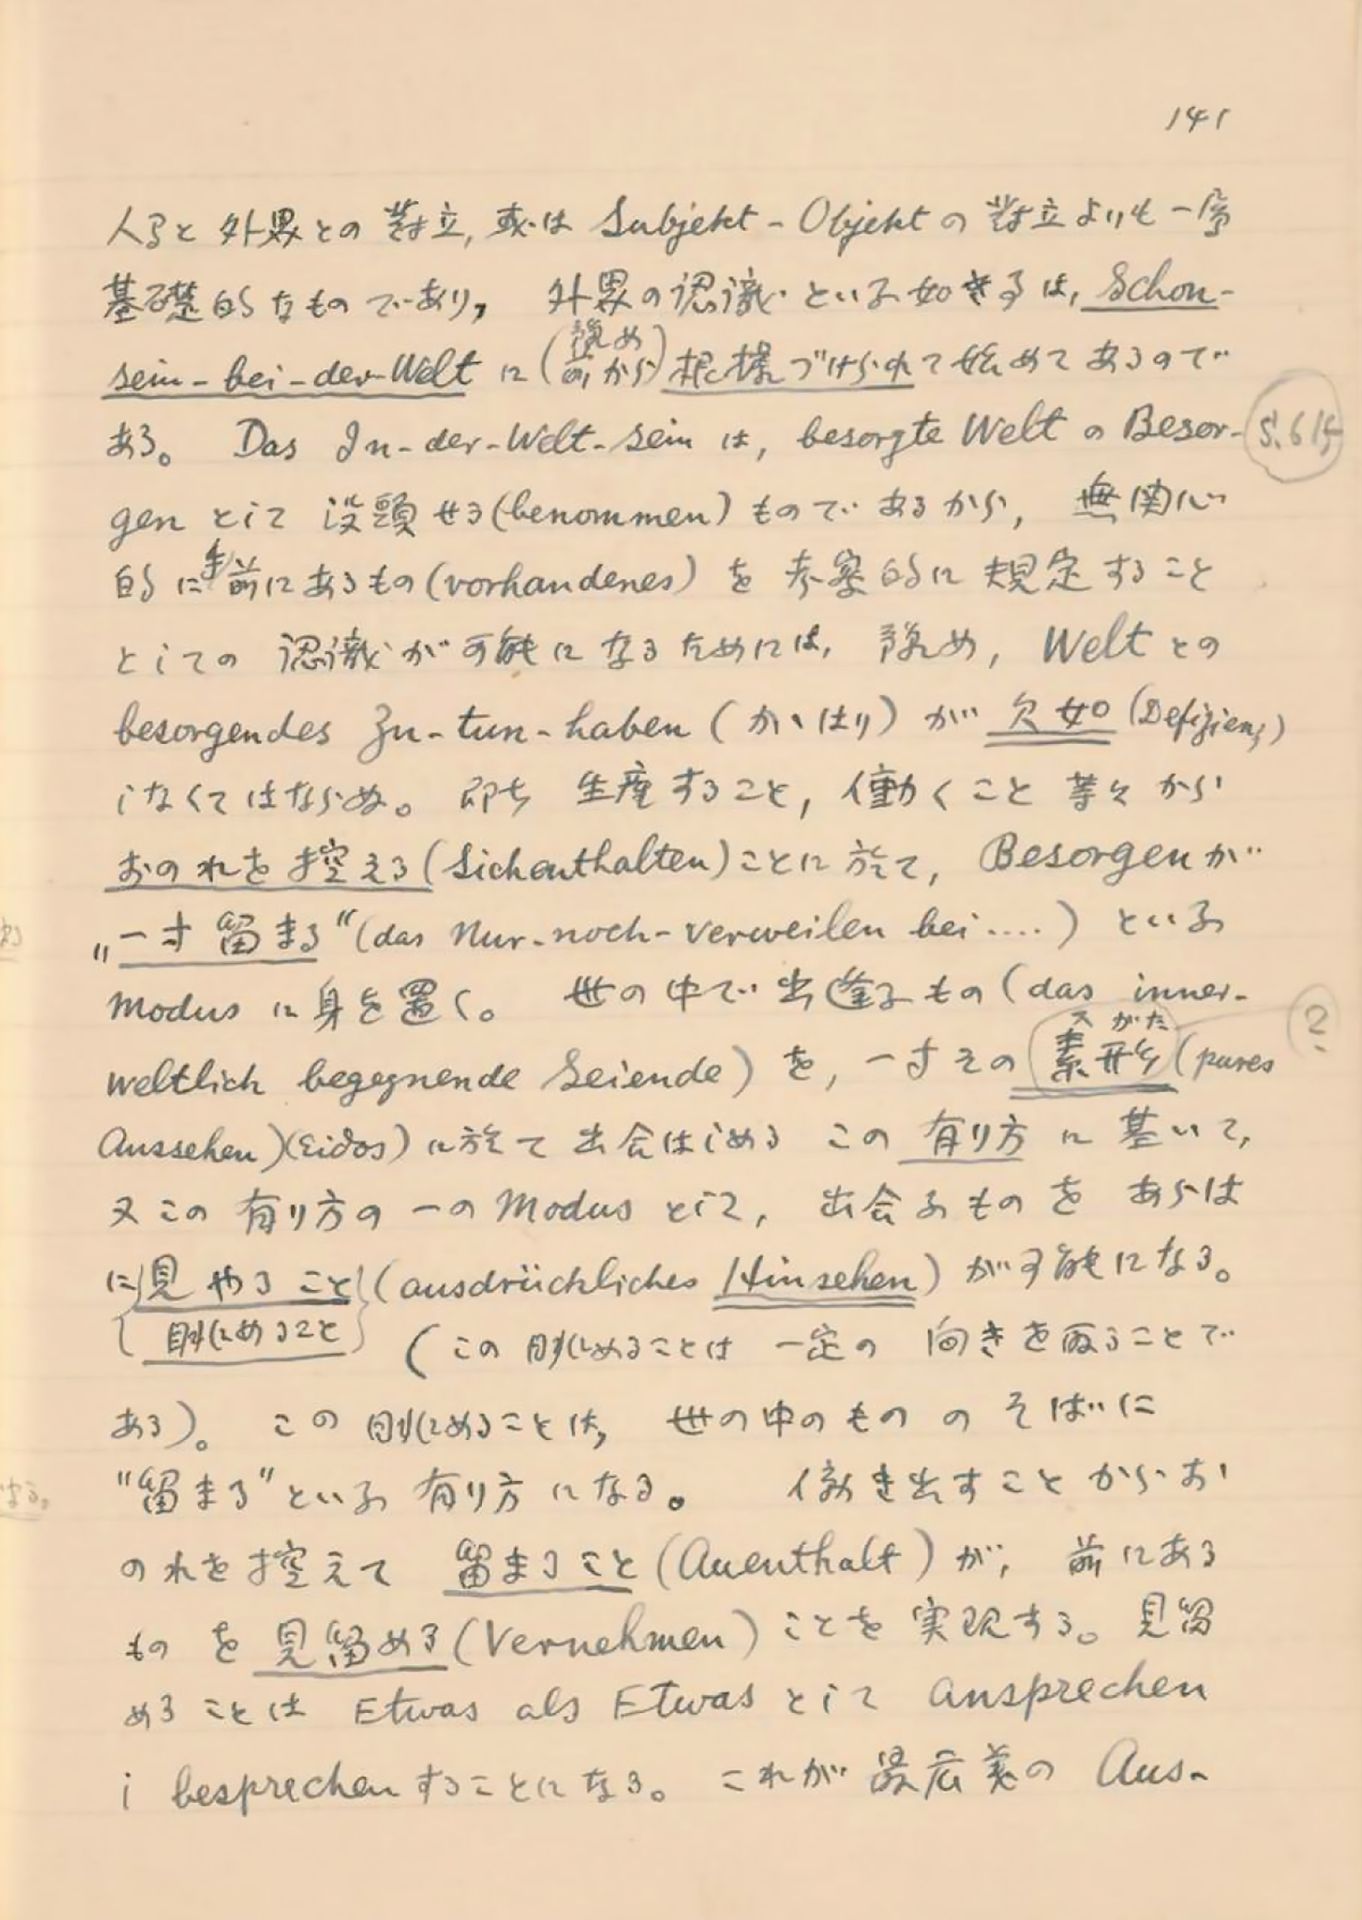 141
人間と外界との対立, 或は Subjekt-Objekt の対立よりも一層
基礎的なものであり, 外界の認識という如き事は, Schon-
sein-bei-der-Welt に(予め前から)根拠づけられて始めてあるので
ある。 Das In-der-Welt-sein は, besorgte Welt の Besor-
S.61f
gen として 没頭せる (benommen) ものであるから, 無関心
的に手前にあるもの (vorhandenes) を 考察的に 規定すること
としての 認識が可能になるためには, 予め, Welt との
besorgendes Zu-tun-haben (かゝはり) が 欠如 (Defizienz)
しなくてはならぬ。 即ち 生産すること, 働くこと 等々から
おのれを控える (Sichenthalten) ことに於て, Besorgen が
„一寸留まる“ (das Nur-noch-verweilen bei ....) といふ
Modus に身を置く。 世の中で出逢ふもの (das inner-
スがた
?
weltlich begegnende Seiende) を, 一寸その 素形 (pures
Aussehen) (εἶδος) に於て 出会はしめる この 有り方 に 基いて,
又この 有り方の 一の Modus として, 出会ふものを あらは
に 見やること (ausdrückliches Hinsehen) が可能になる。
眺めること (この眺めることは 一定の 向きを取ることで
ある)。 この眺めることは, 世の中のもののそばに
"留まる" といふ 有り方 になる。 働き出すことからお
のれを控えて 留まること (Auenthalt) が, 前にある
もの を 見留める (Vernehmen) ことを 実現する。 見留
めることは Etwas als Etwas として ansprechen
し besprechen することになる。 これが 最広義の Aus-